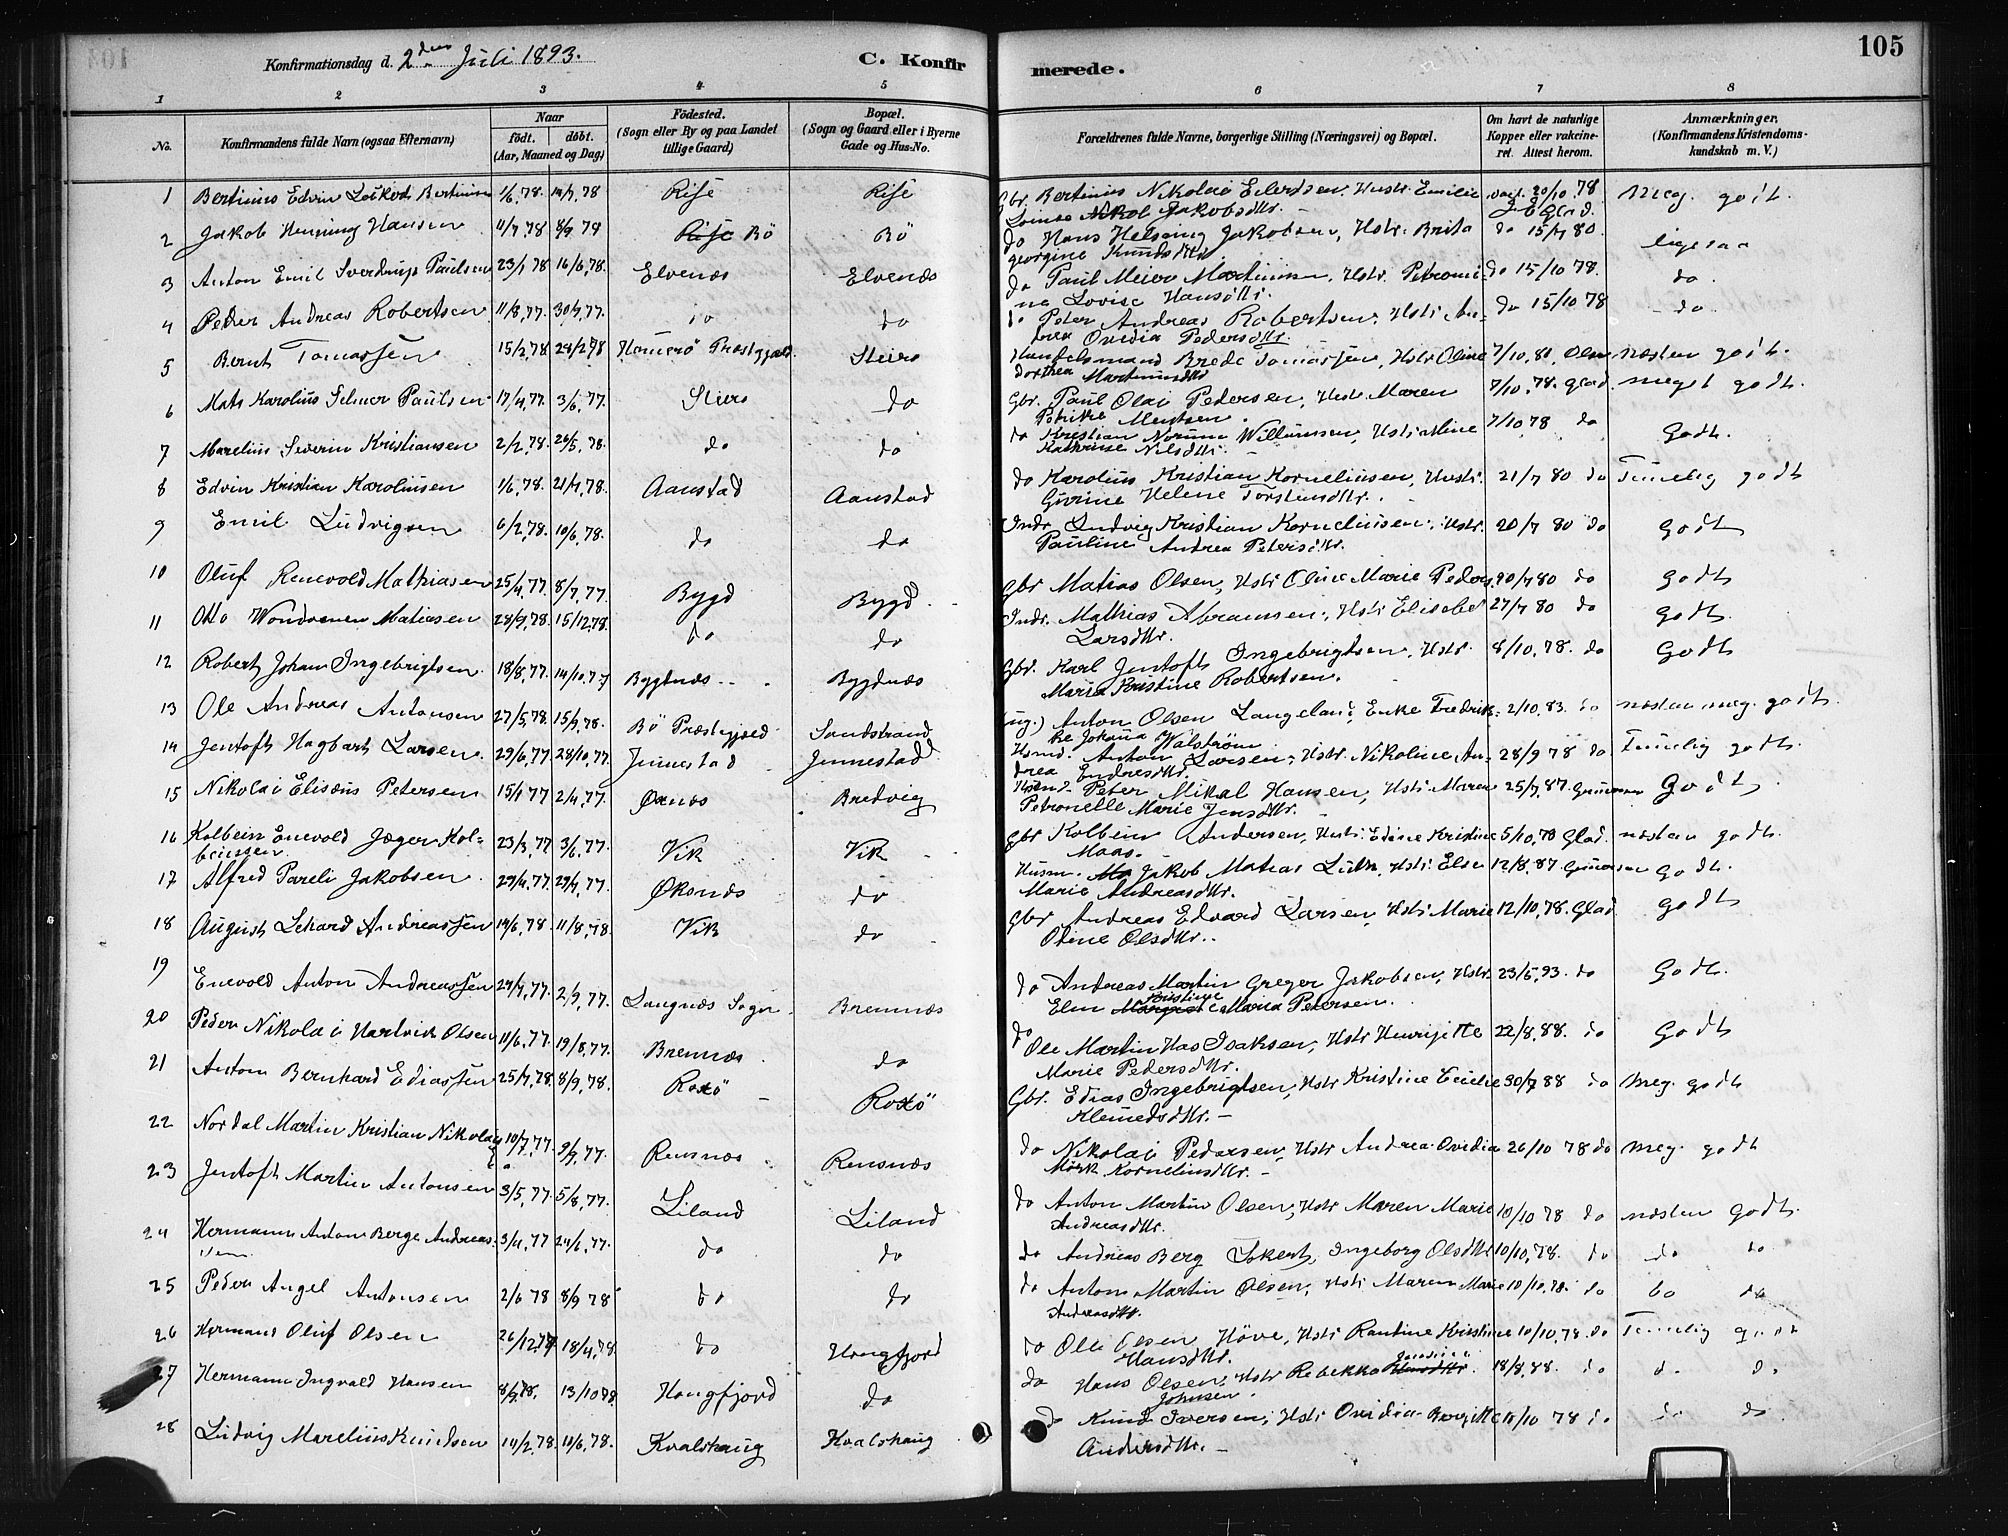 105
Konfirmationsdag d. 2den Juli 1893.
C. Konfirmerede.
1 2 3 4 5 6 7 8
No. Konfirmandens fulde Navn (ogsaa Efternavn) Naar født. døbt. (Aar, Maaned og Dag) Födested. (Sogn eller By og paa Landet tillige Gaard) Bopæl. (Sogn og Gaard eller i Byerne Gade og Hus-No. Forældrenes fulde Navne, borgerlige Stilling (Næringsvei) og Bopæl. Om havt de naturlige Kopper eller vakcineret. Attest herom. Anmærkninger. (Konfirmandens Kristendomskundskab m. V.)
1 Bertinus Edvin 1/6,78. 14/7,78 Risе Rise Gbr. Bertinus Nikolai Eilertsen, Hustr. Emilie vacc. 20/10 78 Meg. godt.
Lovise Jakobsdttr.
2 Jakob Henning Hansen 11/7,78 8/9 78 Bö Bö do Hans Helsing Jakobsen, Hstr. Brita do 15/7 80. ligesaa
Georgine Knudsdttr
3 Anton Emil Sverdrup Paulsen 23/1 78 16/6,78. Elvenæs Elvenæs do Paul Meier Martinsen, Hstr. Petromi- do 15/10 78. do.
ne Lovise Hansdttr.
4 Peder Andreas Robertsen 11/8,77. 30/9,77. do do do Peter Andreas Robertsen, Hstr. An- do 15/10 78 do
drea Ovidia Pedersdttr.
5 Bernt Tomassen 15/2,78 24/2 78 Hamerö Præstegjæld. Steiro Handelsmand Brede Tomassen, Hstr Oline 7/10,80, næsten godt.
Dorthea Martinusdttr
6 Mats Karolius Selmer Paulsen 17/4,77. 3/6,77. Steiro do Gbr. Paul Olai Pedersen, Hustr. Maren 7/10,78. Glad. meget godt.
Petrikke Mentsen.
7 Marelius Severin Kristiansen 2/2,78. 26/5,78. do do do Kristian Norum Willumsen, Hstr. Aline 7/10 78 do Godt.
Kathrine Nilsdttr.
8 Edvin Kristian Karoliusen 1/6,78. 21/7,78. Aanstad Aanstad do Karolius Kristian Korneliusen, Hustr. 21/7 80 do Temelig godt
Gurine Helene Torstensdttr.
9 Emil Ludvigsen 6/2,78. 10/6,78. do do Indr. Ludvig Kristian Korneliusen, Hstr. 20/7 80 do Godt
Pauline Andrea Petersdttr.
10 Oluf Renevold Mathiasen 25/4,77. 8/7,77. Bygd Bygd. Gbr Matias Olsen, Hstr Oline Marie Peders. 20/7 80 do Godt
11 Otto Matiasen 24/9,78. 15/12,78. do do Indr. Mathias Abramsen, Hstr. Elisabet 27/7 80 do Godt.
Larsdttr.
12 Robert Johan Ingebrigtsen 18/8,77. 14/10,77 Bygdnæs Bygdnæs Gbr. Karl Jentoft Ingebrigtsen, Hstr. 8/10,78. do Godt
Maria Kristine Robertsen.
13 Ole Andreas Antonsen 27/5,78. 15/9,78. Bö Præstegjæld Sandstrand (ug.) Anton Olsen Langeland, Enke Fredrik- 2/10,83. do næsten meg. godt.
ke Johanna Walstrøm
14 Jentoft Hagbart Larsen 29/6,77. 28/10,77. Jennestad Jennestad Hsmd. Anton Larsen, Hstr. Nikoline An- 28/9 78 do Temelig godt.
drea Endresdttr.
15 Nikolai Elisæus Petersen 15/1 77 2/4,77. Bredvig Hsmd. Peter Mikal Hansen, Hstr. Maren 25/7,87. Godt
Petronelle Marie Jensdttr.
16 Kolbein Enevold Jæger Kol- 23/3,77 3/6,77. Vik Vik Gbr Kolbein Andersen, Hustr. Edine Kristine 5/10,78 Glad. næsten godt.
beinssen. Maas.
17 Alfred Pareli Jakobsen 29/4,77. 29/7,77. Øksnæs do Husm. Jakob Matias Lüth, Hstr. Else 12/8,87 Godt.
Marie Andreasdttr.
18 August Lehard Andreassen 14/6,78. 11/8,78. Vik do. Gbr Andreas Edvard Larsen, Hstr. Marie 12/10,78. Glad godt
Oline Olsdttr.
19 Enevold Anton Andreassen 24/7,77. 2/9,77. Langnæs Sogn. Bremnæs do Andreas Martin Greger Jakobsen, Hstr. 23/5,93. do Godt.
Elen Kristine Maria Petersen.
20 Peder Nikolai Hartvik Olsen 11/6,77. 19/8,77. Bremnæs do do Ole Martin Has Isaksen, Hstr Henrijette 22/8,88. do Godt
Marie Pedersdttr.
21 Anton Bernhard Ediassen 25/7,78. 8/9,78. Roxö Roxö Gbr. Edias Ingebrigtsen, Hstr Kristine Emilie 30/7 88 do Meg. godt
Klemedsdttr.
22 Nordal Martin Kristian Nikolai- 10/7,77. 9/9,77. Rensnæs Rensnæs do Nikolai Pedersen, Hstr Andrea Ovidia 26/10 78 do Meg. godt
Mørk Korneliusdttr.
23 Jentoft Martin Antonsen 3/5,77. 5/8,77. Liland Liland do Anton Martin Olsen, Hstr Maren Marie 10/10 78 do næsten godt.
Andreasdttr.
24 Hermann Anton Berge Andreas- 3/4,77 24/6,77. do do do Andreas Berg Ingeborg Olsdttr 10/10,78. do do do
sen
25 Peder Angel Antonsen 2/6 78 8/9 78 do do do Anton Martin Olsen, Hstr Maren Marie 10/10,78. do do do
Andreasdttr.
26 Hermann Oluf Olsen 26/12,77 18/4,78. do Hongfjord do Ole Olsen Höve, Hstr Rantine Kristine 10/10,78. do Temelig godt
Hansdttr.
27 Hermann Ingvald Hansen 8/9,78. 13/10 78 Hongfjord do do Hans Olsen, Hstr Rebekka 18/8,88. do d. d.
Johnsen.
28 Ludvig Marelius Knudsen 14/2,78. 10/6,78. Kvalshaug Kvalshaug do Knud Iversen, Hstr Ovidia Bergitte 18/10 78 do do do
Andersdttr.